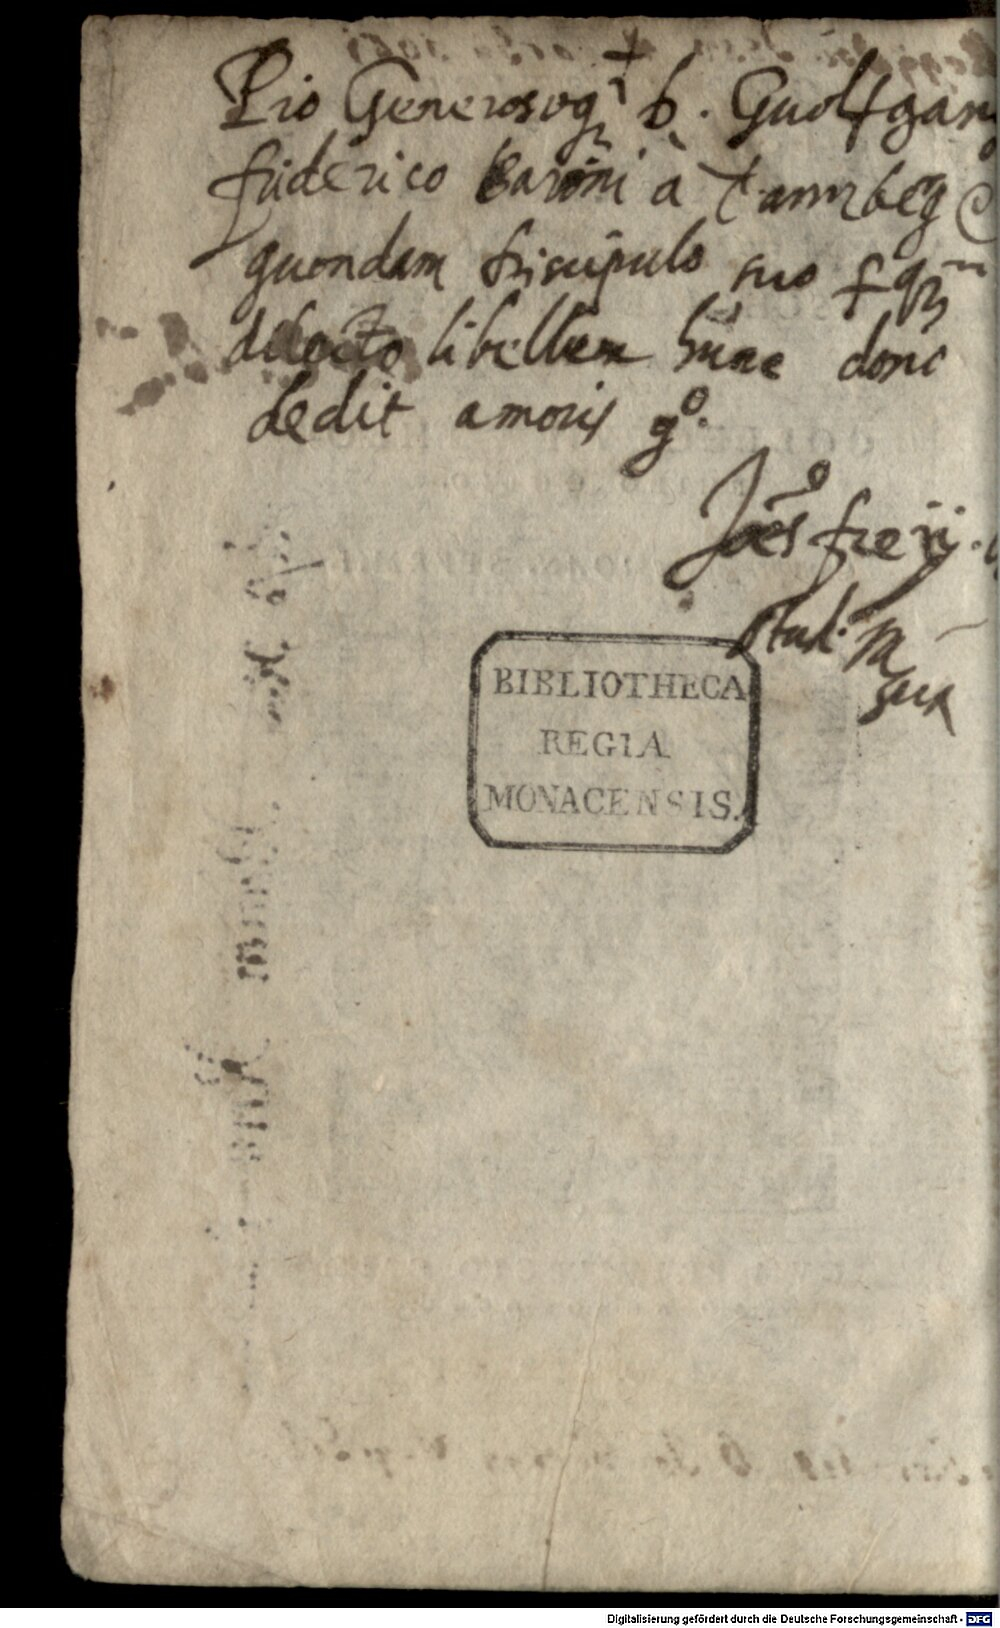 Pio Generosoq D. Guolfgang
friderico Baroni à Tannberg
quondam discipulo suo
dilecto libellum hunc dono
dedit amoris gº.
Joēs
Stud.
BIBLIOTHECA
REGIA
MONACENSIS.
Digitalisierung gefördert durch die Deutsche Forschungsgemeinschaft - DFG